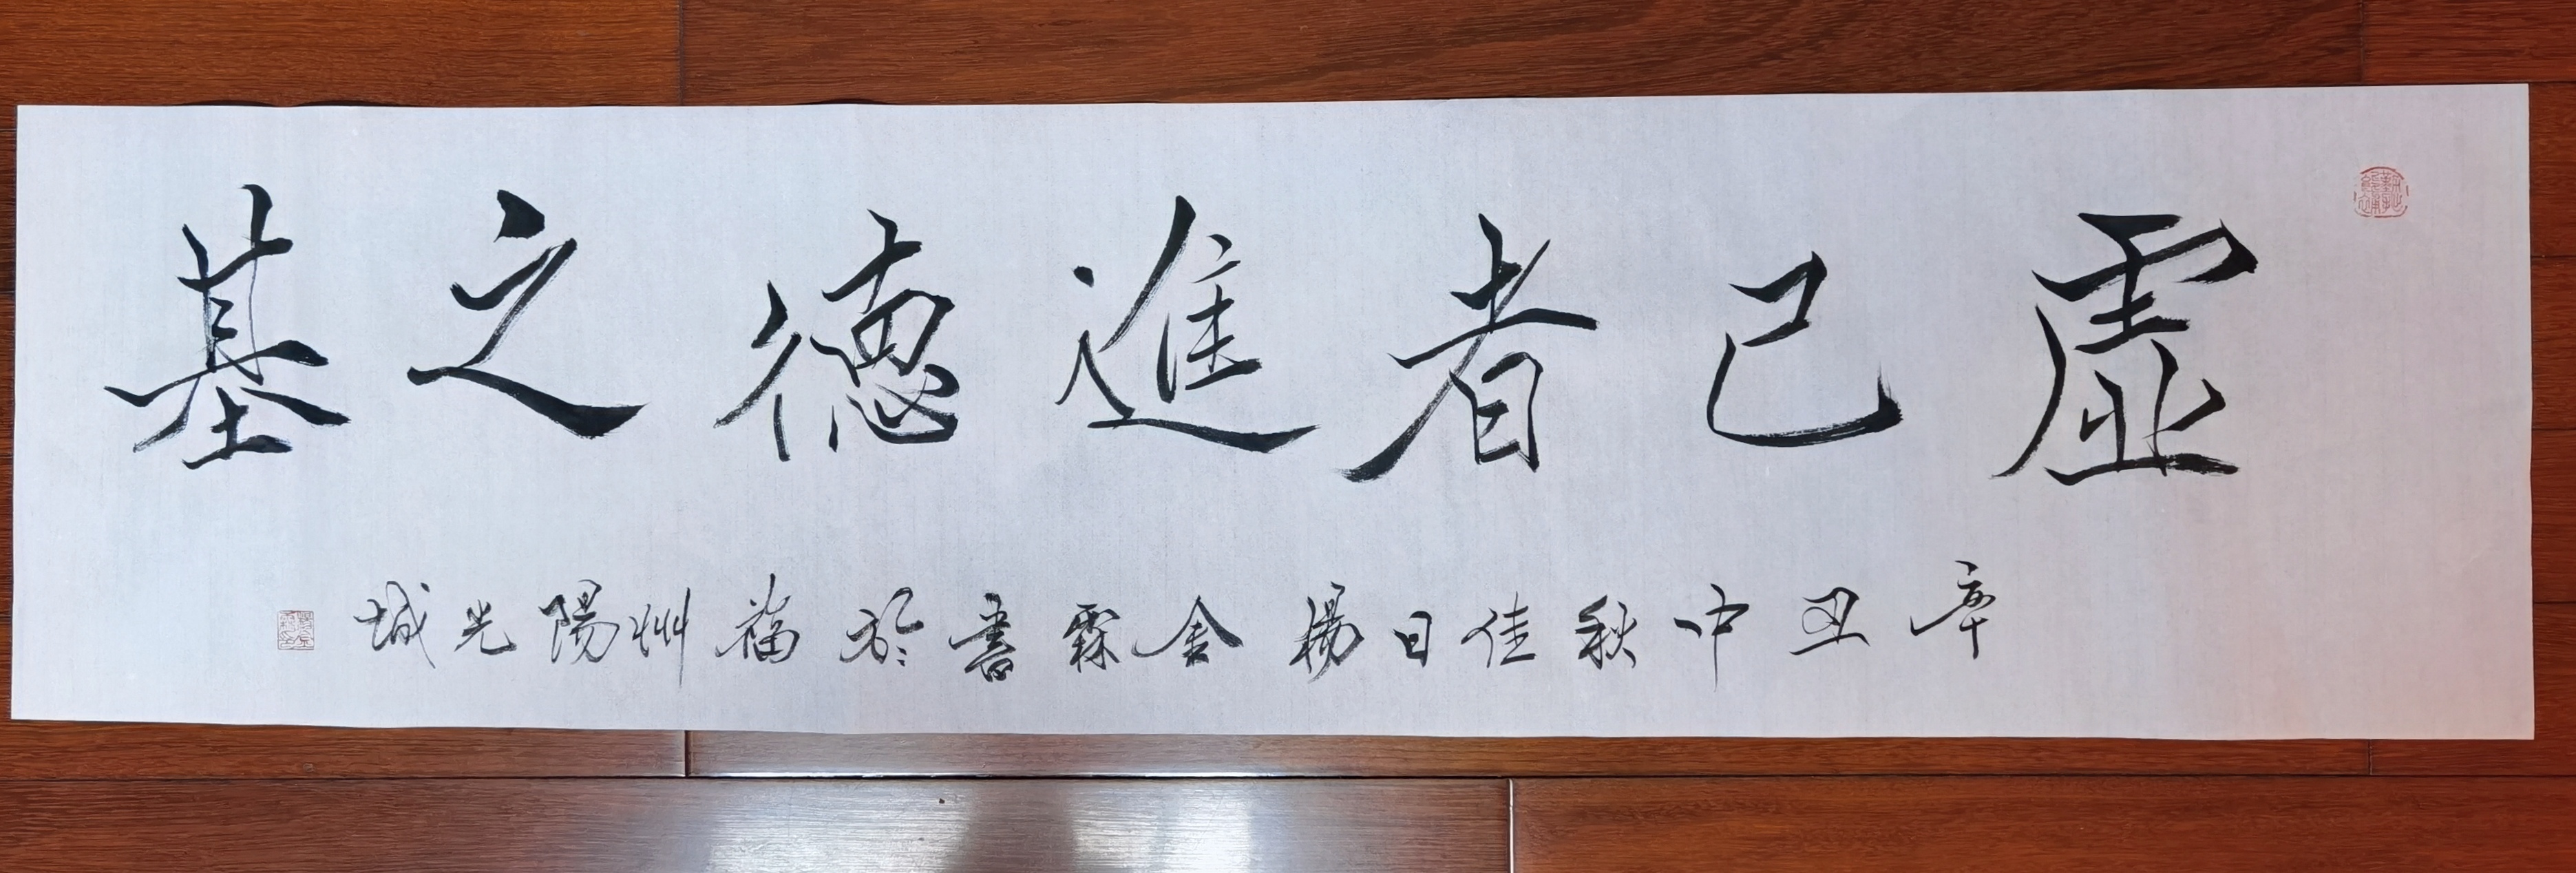 虛己者進德之基
辛丑中秋佳日楊金霖書於福州陽光城